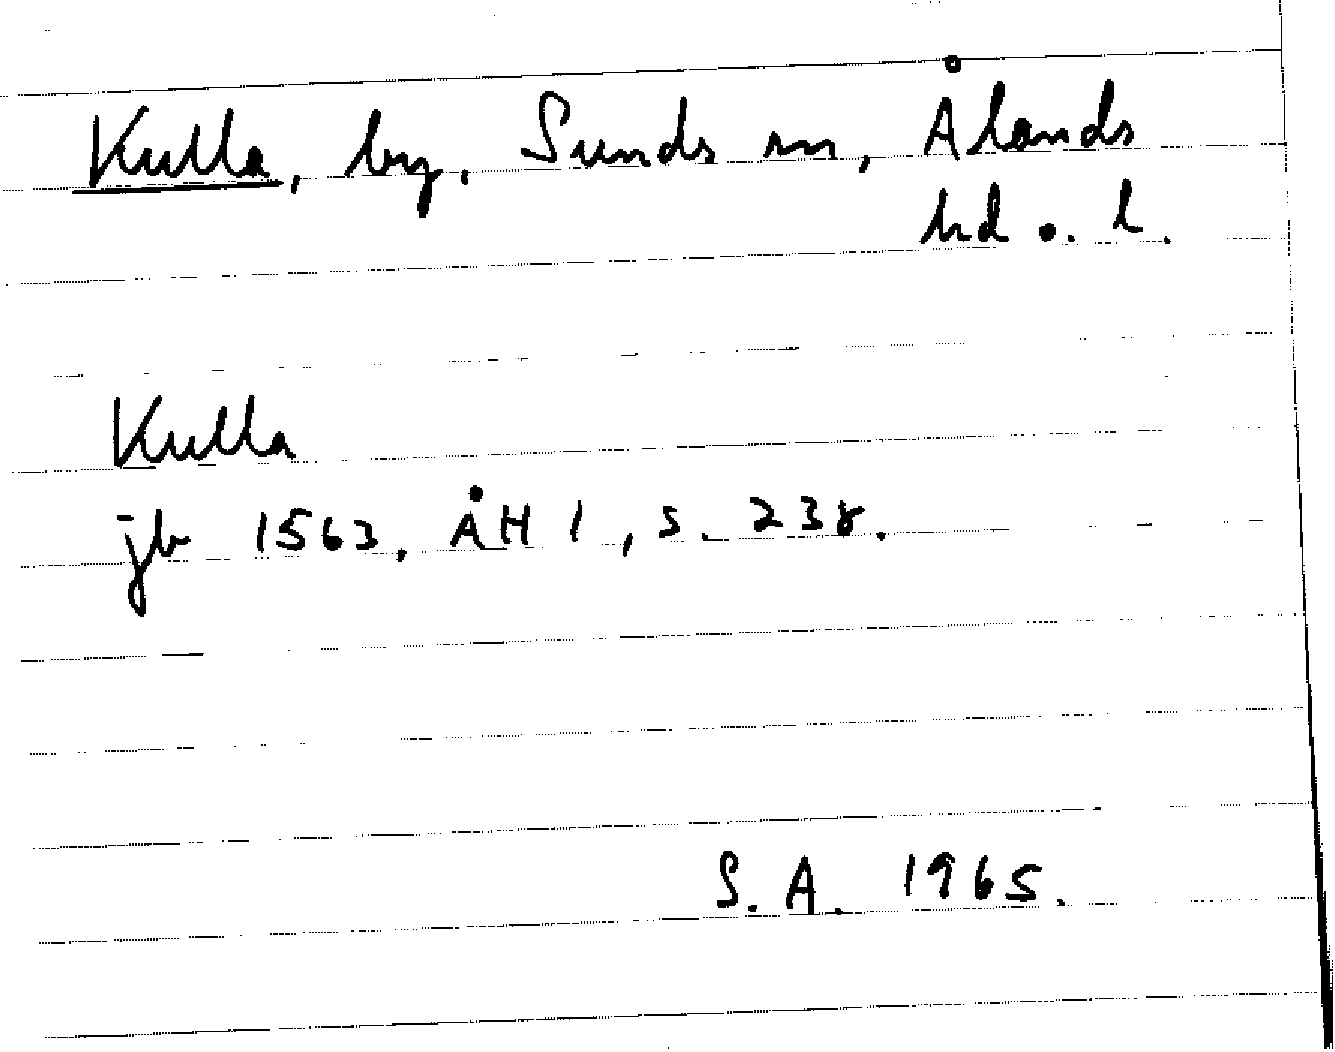 Kulla, by, Sunds sn, Ålands
hd o. l.
Kulla
jb 1563, ÅH 1, s. 238.
S. A. 1965.